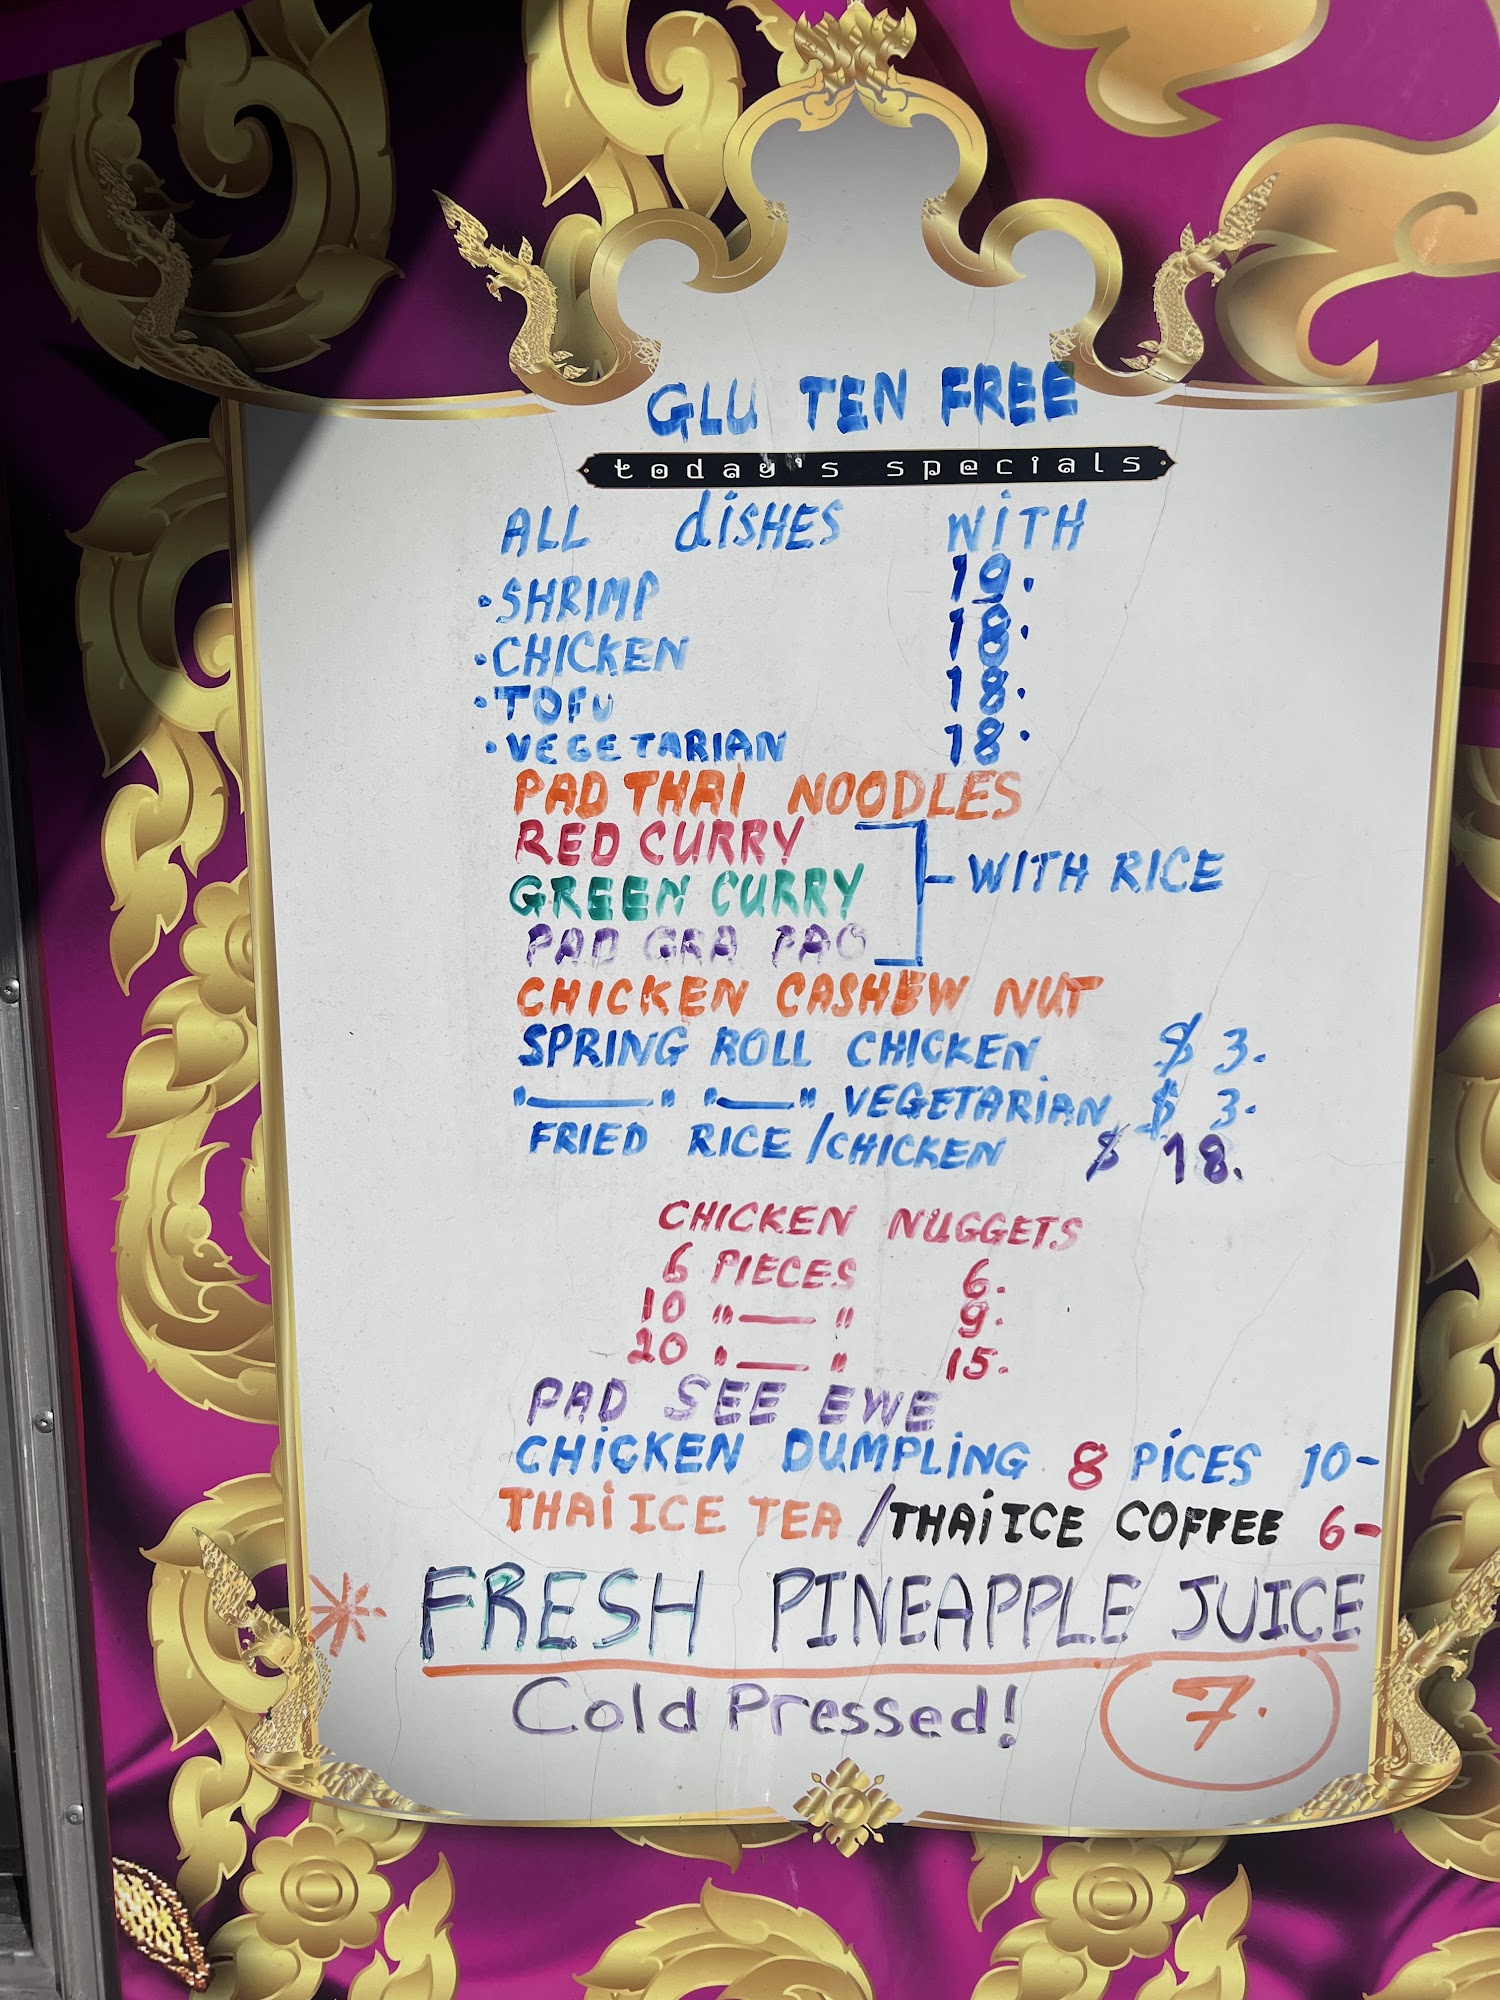 GLUTEN FREE
today's specials
ALL dISHES WITH
•SHRIMP 19.
•CHICKEN 18.
•TOFU 18.
•VEGETARIAN 18.
PAD THAI NOODLES
RED CURRY
GREEN CURRY
WITH RICE
PAD GRA PAO
CHICKEN CASHEW NUT
SPRING ROLL CHICKEN $ 3.
"——" "——" VEGETARIAN $ 3.
FRIED RICE /CHICKEN $ 18.
CHICKEN NUGGETS
6 PIECES 6.
10 "——" 9.
20 "——" 15.
PAD SEE EWE
CHICKEN DUMPLING 8 PICES 10-
THAI ICE TEA /THAI ICE COFFEE 6-
* FRESH PINEAPPLE JUICE
Cold Pressed! 7.